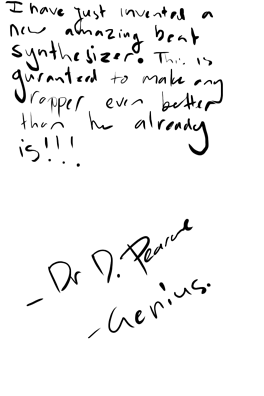 I have just invented a
new amazing beat
synthesizer. This is
guranteed to make any
rapper even better
than he already
is!!!
- Dr D. Pearce
- Genius.